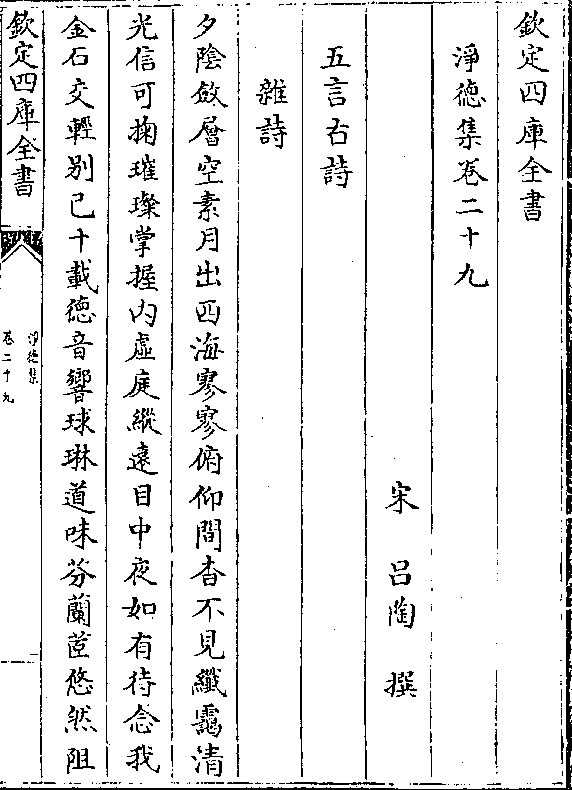 欽定四庫全書
淨徳集巻二十九
宋 吕陶 撰
五言古詩
雜詩
夕陰斂層空素月出四海寥寥俯仰間杳不見纖靄清
光信可掬璀璨掌握内虚庭縱遠目中夜如有待念我
金石交輕别已十載徳音響球琳道味芬蘭茝悠然阻
欽定四庫全書
淨徳集
巻二十九